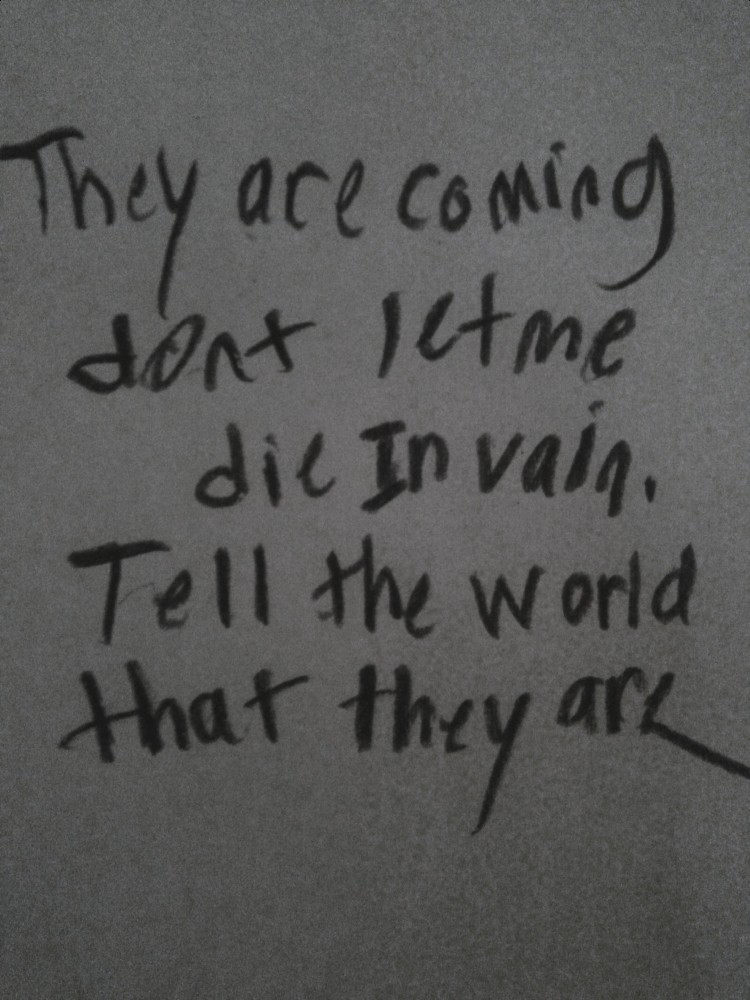 They are coming
dont let me
die In vain.
Tell the world
that they are